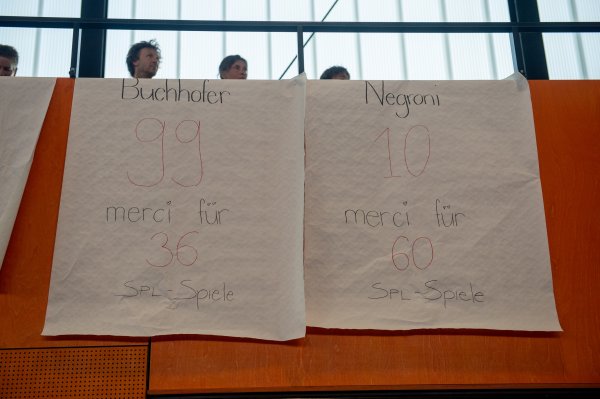 Buchhofer
99
merci für
36
SPL-Spiele
Negroni
10
merci für
60
SPL-Spiele